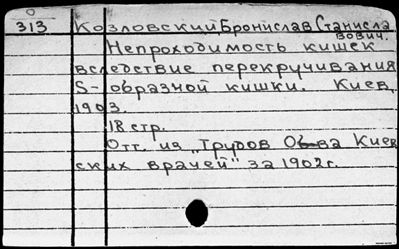 313 Козловский Бронислав Станисла
вович.
Непроходимость кишек
вследствие перекручивания
S-образной кишки. Киев,
1903.
18 стр.
Отт. из „Трудов Об-ва Киев
ских врачей" за 1902 г.